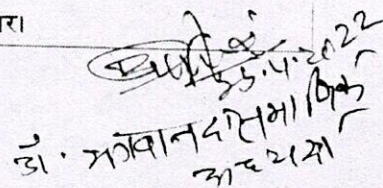 रा
25.4.2022
डॉ. भगवानदास माणिक
अध्यक्ष